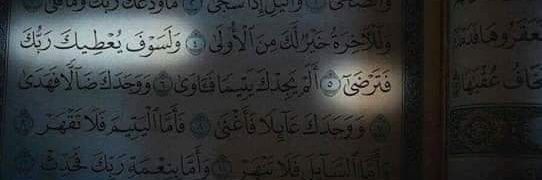 وَٱلضُّحَىٰ ١ وَٱلَّيۡلِ إِذَا سَجَىٰ ٢ مَا وَدَّعَكَ رَبُّكَ وَمَا قَلَىٰ ٣
وَلَلۡأٓخِرَةُ خَيۡرٞ لَّكَ مِنَ ٱلۡأُولَىٰ ٤ وَلَسَوۡفَ يُعۡطِيكَ رَبُّكَ
فَتَرۡضَىٰٓ ٥ أَلَمۡ يَجِدۡكَ يَتِيمٗا فَـَٔاوَىٰ ٦ وَوَجَدَكَ ضَآلّٗا فَهَدَىٰ
٧ وَوَجَدَكَ عَآئِلٗا فَأَغۡنَىٰ ٨ فَأَمَّا ٱلۡيَتِيمَ فَلَا تَقۡهَرۡ ٩
وَأَمَّا ٱلسَّآئِلَ فَلَا تَنۡهَرۡ ١٠ وَأَمَّا بِنِعۡمَةِ رَبِّكَ فَحَدِّثۡ ١١
عُقۡبَٰهَا